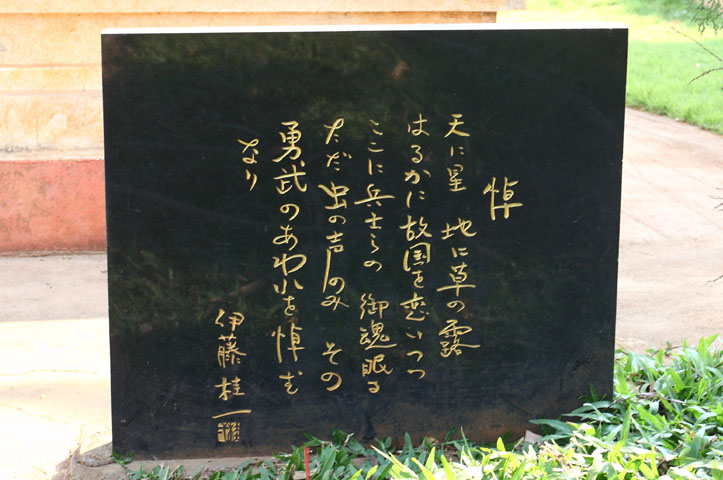 悼
天に星 地に草の露
はるかに故国を恋いつつ
ここに兵士らの 御魂眠る
ただ虫の声のみ その
勇武のあわれを悼む
なり
伊藤桂一